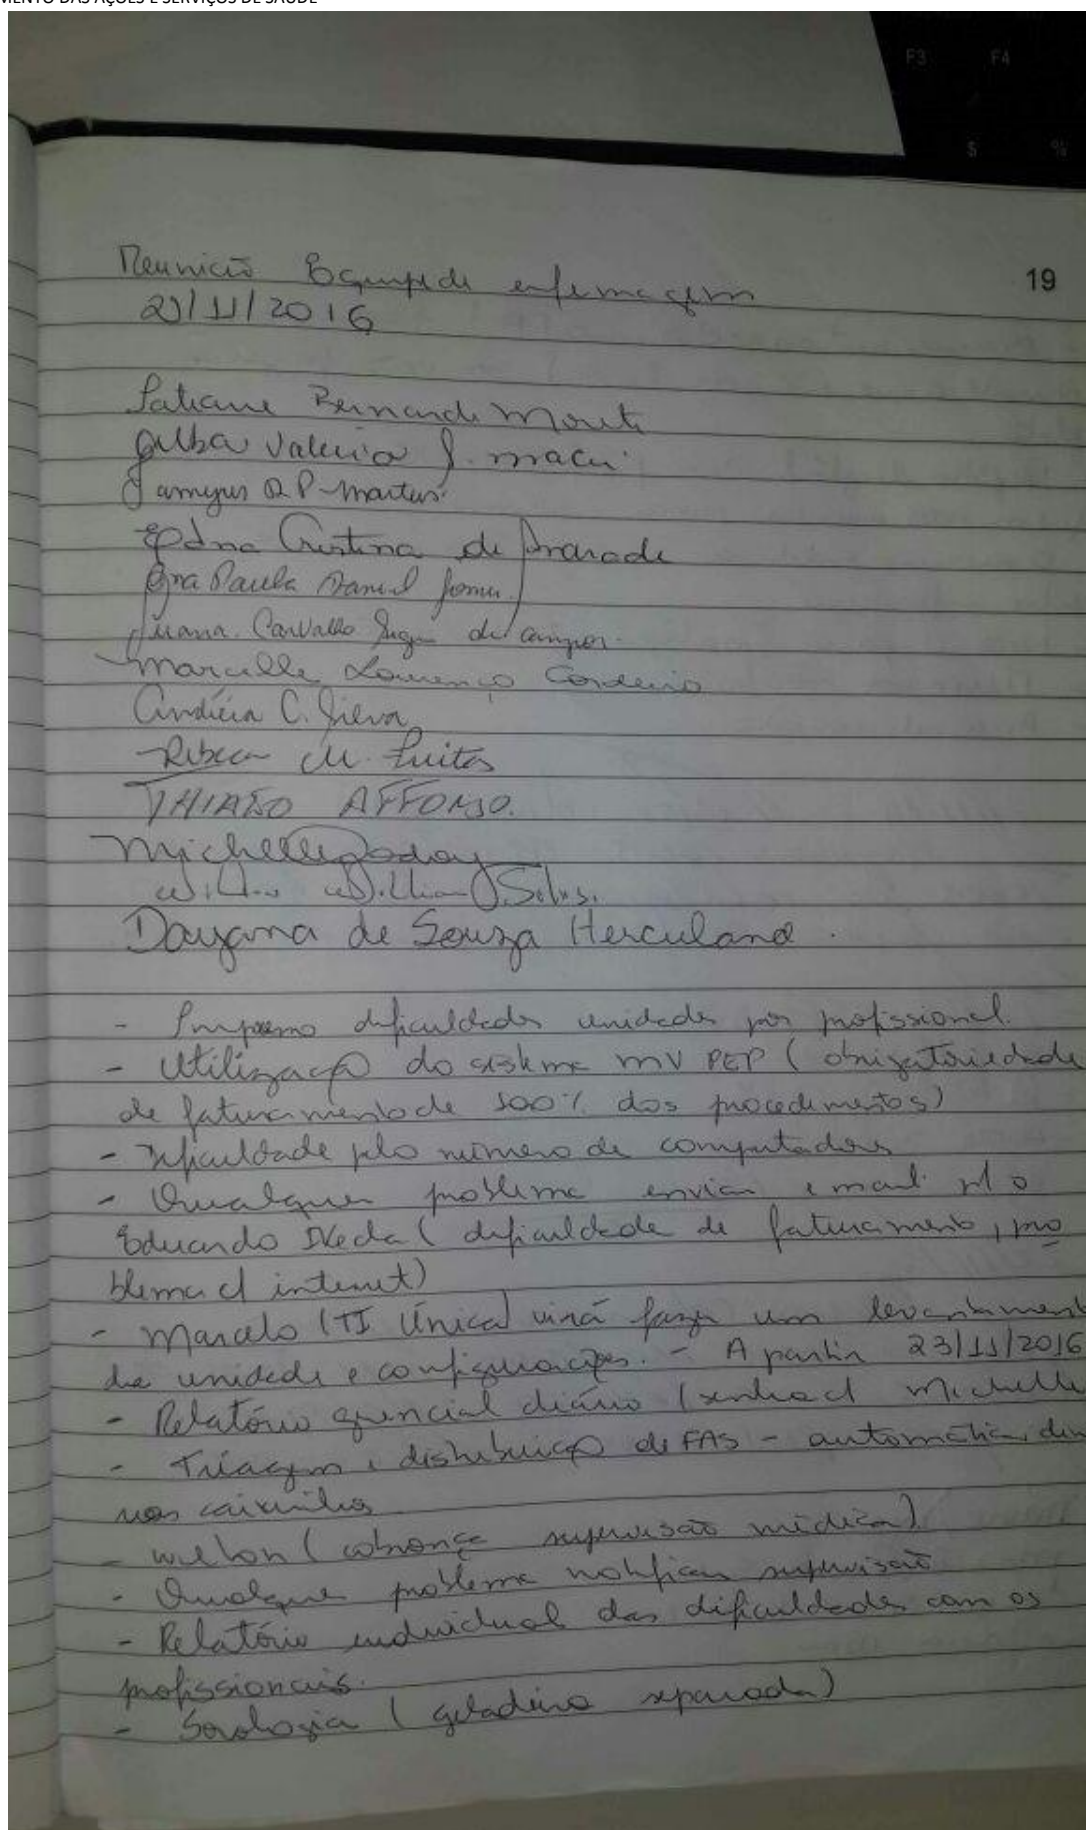 MENTO DAS AÇÕES E SERVIÇOS DE SAÚDE
F3 F4
$ %
19
Reunião Equipe de enfermagem
21/11/2016
Tatiane Bernardi Monti
Gilba Valeria J.
R P Martins
Edna Cristina de Andrade
Ana Paula Daniel Gomes
Juana Carvalho de Campos
Marcelle Lourenço Cordeiro
C. Silva
M. Freitas
THIAGO AFFONSO.
Michelle Godoy
Willian Silva.
Dayana de Souza Herculano.
- dificuldades unidades por profissional.
- Utilização do sistema MV PEP (obrigatoriedade
de faturamento de 100% dos procedimentos)
- Dificuldade pelo número de computadores
- Qualquer problema enviar email p/ o
Eduardo Ikeda (dificuldade de faturamento, pro
blema c/ internet)
- Marcelo (TI Única) virá fazer um levantament
da unidade e configurações. - A partir 23/11/2016
- Relatório gerencial diário (senha c/ Michelle
- Triagem e distribuição de FAS - automática, dir
nas caixinhas
- (cobrança supervisão médica)
- Qualquer problema notificar supervisão
- Relatório individual das dificuldades com os
profissionais.
- Sorologia (geladeira separada)